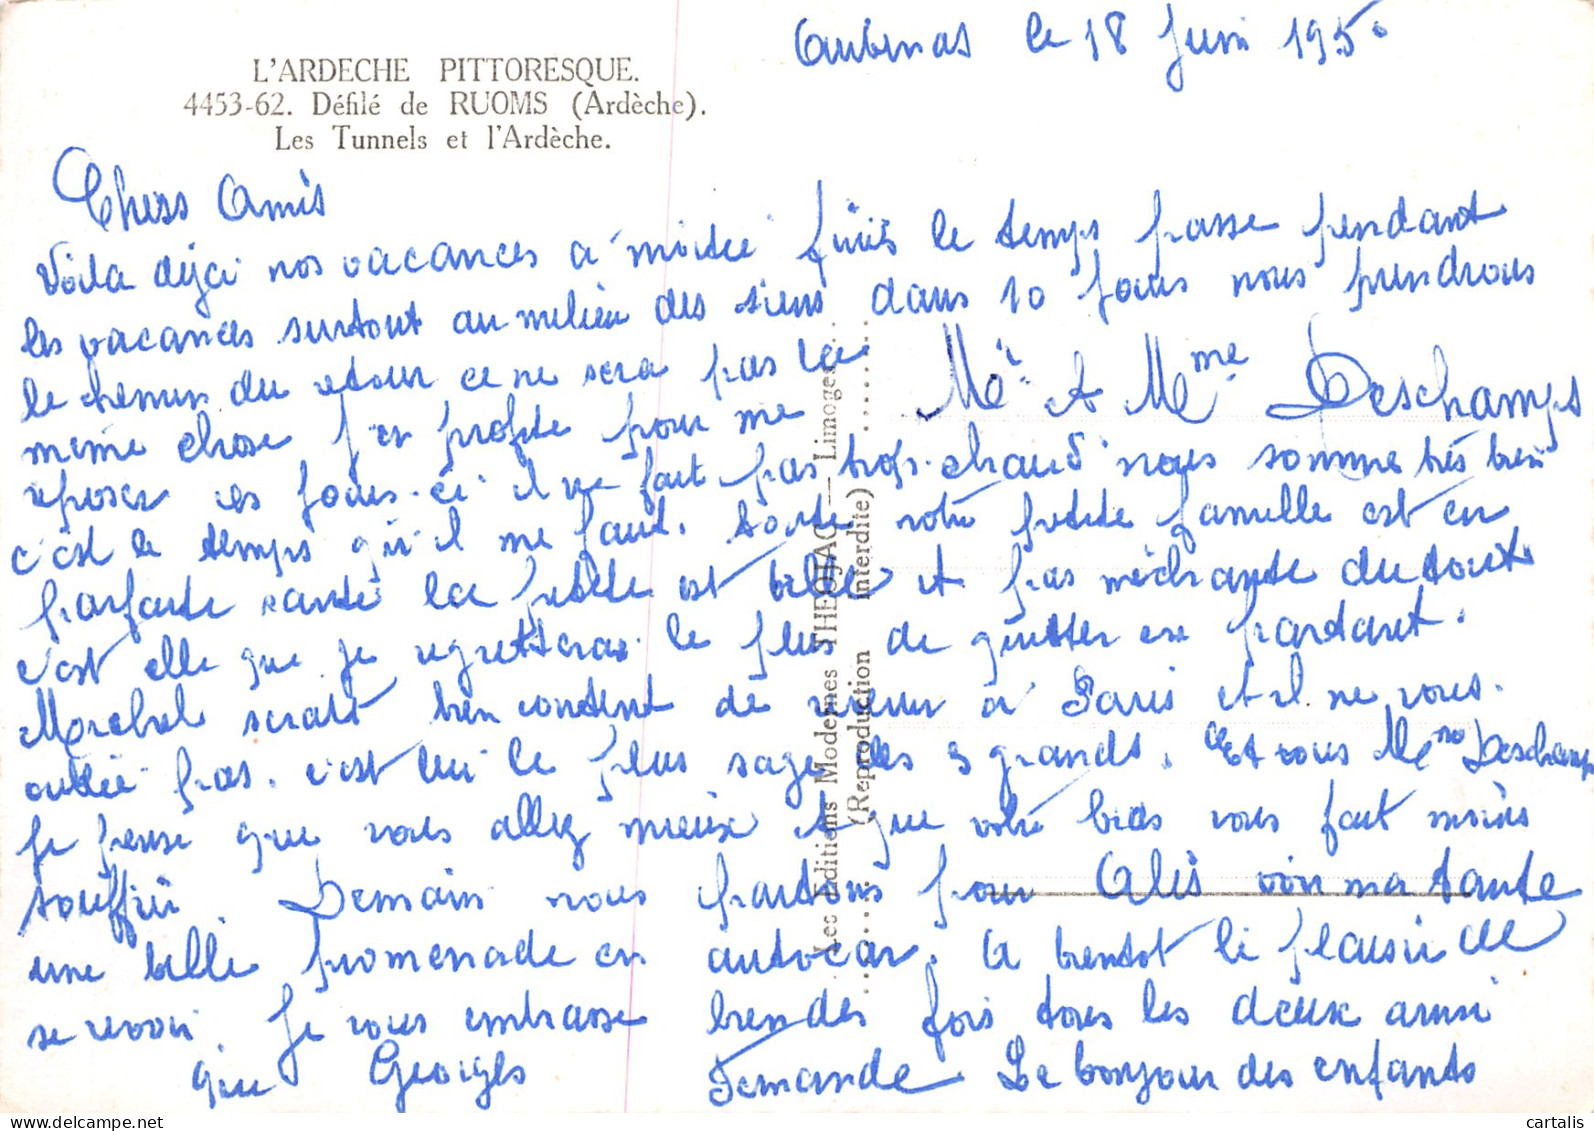 Aubenas le 18 Juin 1950
L'ARDECHE PITTORESQUE.
4453-62. Défilé de RUOMS (Ardèche).
Les Tunnels et l'Ardèche.
Chers Amis
Voila déja nos vacances a moitié finies le temps passe pendant
les vacances surtout au milieu des siens dans 10 jours nous prendrons
le chemin du retour ce ne sera pas la
Mr A Mme Deschamps
meme chose j'en profite pour me
reposer ces jours-ci il ne fait pas trop chaud nous somme très bien
c'est le temps qu'il me faut. toute notre petite famille est en
parfaite santé la petite est belle et pas méchante du tout
c'est elle que je regretterai le plus de quitter en partant.
Michel serait bien content de venir a Paris et il ne vous
oublie pas. c'est lui le plus sage des 3 grands. Et vous Mme Deschamps
je pense que vous allez mieux et que votre bras vous fait moins
souffrir Demain nous partons pour Alès voir ma tante
une belle promenade en autocar. A bientot le plaisir de
se revoir. Je vous embrasse bien des fois tous les deux ainsi
que Georges Fernande Le bonjour des enfants
Les Editions Modernes THEOJAC — Limoges
(Reproduction interdite)
cartalis